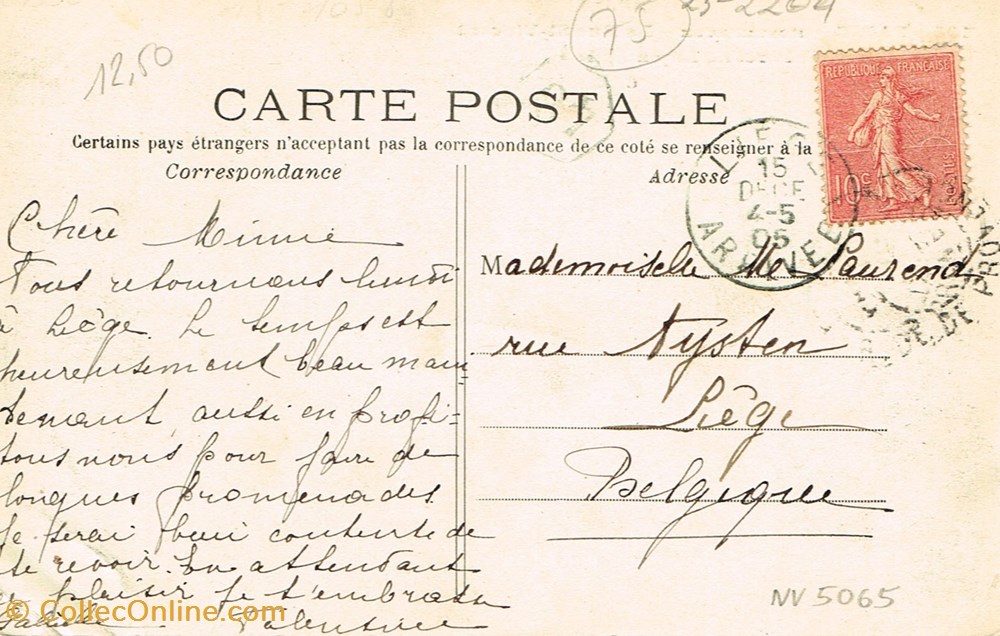 12,50
75
25-2204
CARTE POSTALE
Certains pays étrangers n'acceptant pas la correspondance de ce coté se renseigner à la
Correspondance
Chère Minnie
Nous retournons lundi
à Liège. Le temps est
heureusement beau main-
tenant, aussi en profi-
tons nous pour faire de
longues promenades
Je serai bien contente de
te revoir. En attendant
ce plaisir je t'embrasse
Valentine
Adresse
REPUBLIQUE FRANÇAISE
10c
POSTES
LIEGE
15
DECE
4-5
05
ARRIVEE
Mademoiselle M.
rue Nysten
Liège
Belgique
NV 5065
© CollecOnline.com